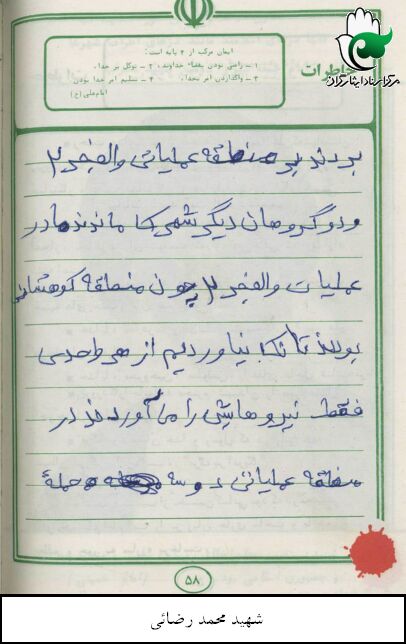 خاطرات
مرکز اسناد ایثارگران
ایمان مرکب از ۴ پایه است:
۱ ـ راضی بودن بقضاء خداوند، ۲ ـ توکل بر خدا،
۳ ـ واگذاردن امر بخدا، ۴ ـ تسلیم امر خدا بودن
امام علی (ع)
بردند بر منطقه عملیاتی والفجر ۲
و دو گروهان دیگر شهرک ماندند ما در
عملیات والفجر ۲ چون منطقه کوهستانی
بود تانک نیاوردیم از هر واحدی
فقط نیروهایش را می آوردند در
منطقه عملیاتی دو سه حملهٔ
۵۸
شهید محمد رضائی